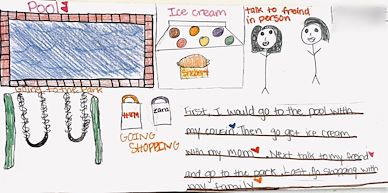 Pool
Ice cream
talk to freind
in person
Sherbert
Going to the Park
H&M
zara
GOING
SHOPPING
First, I would go to the pool with
my cousin. Then go get ice cream
with my mom. Next talk to my freind
and go to the park. Last, Go shopping with
my family